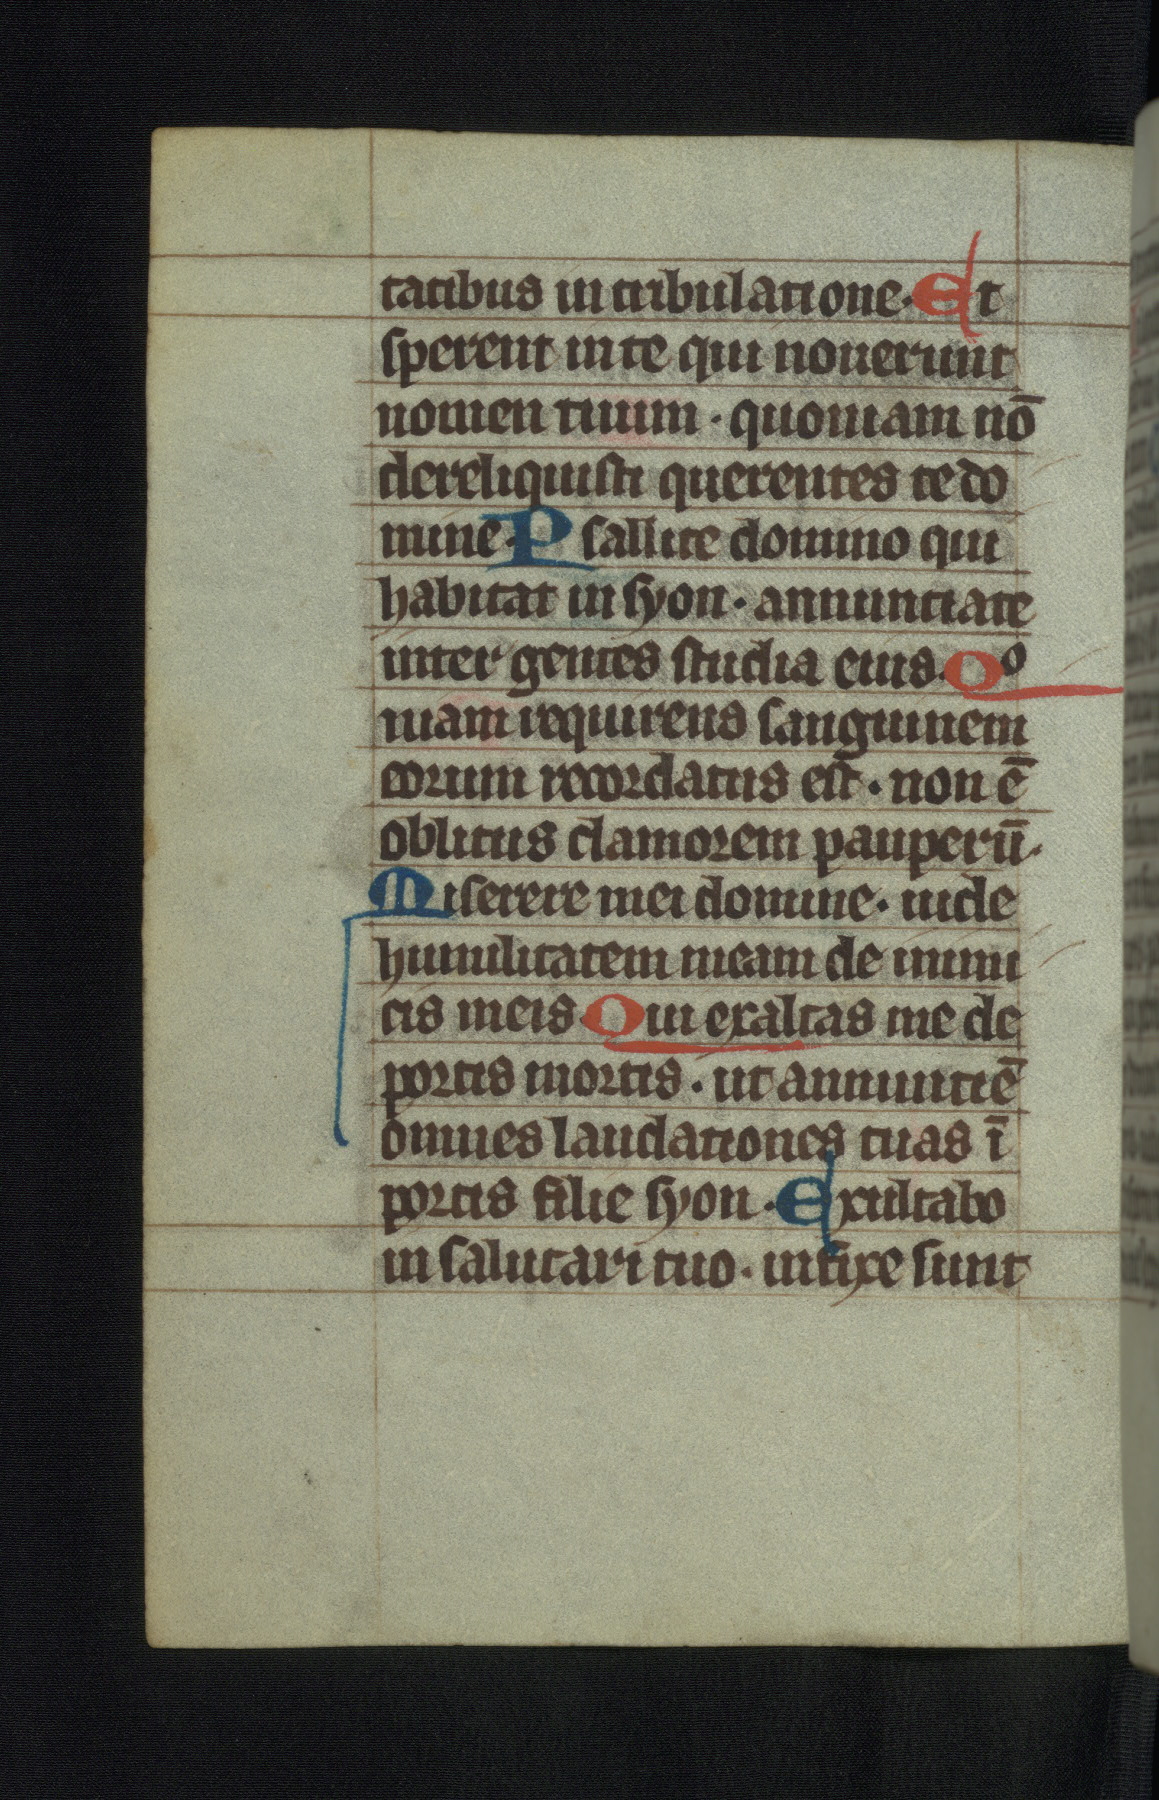 tatibus in tribulatione · Et
sperent in te qui nouerunt
nomen tuum · quoniam nō
dereliquisti querentes te do
mine · Psallite domino qui
habitat in syon · annunciate
inter gentes studia eius · Qͦ
niam requirens sanguinem
eorum recordatus est · non ē
oblitus clamorem pauperū ·
Miserere mei domine · uide
humilitatem meam de inimi
cis meis Qui exaltas me de
portis mortis · ut annuntiē
omnes laudationes tuas ī
portis filie syon · Exultabo
in salutari tuo · infixe sunt